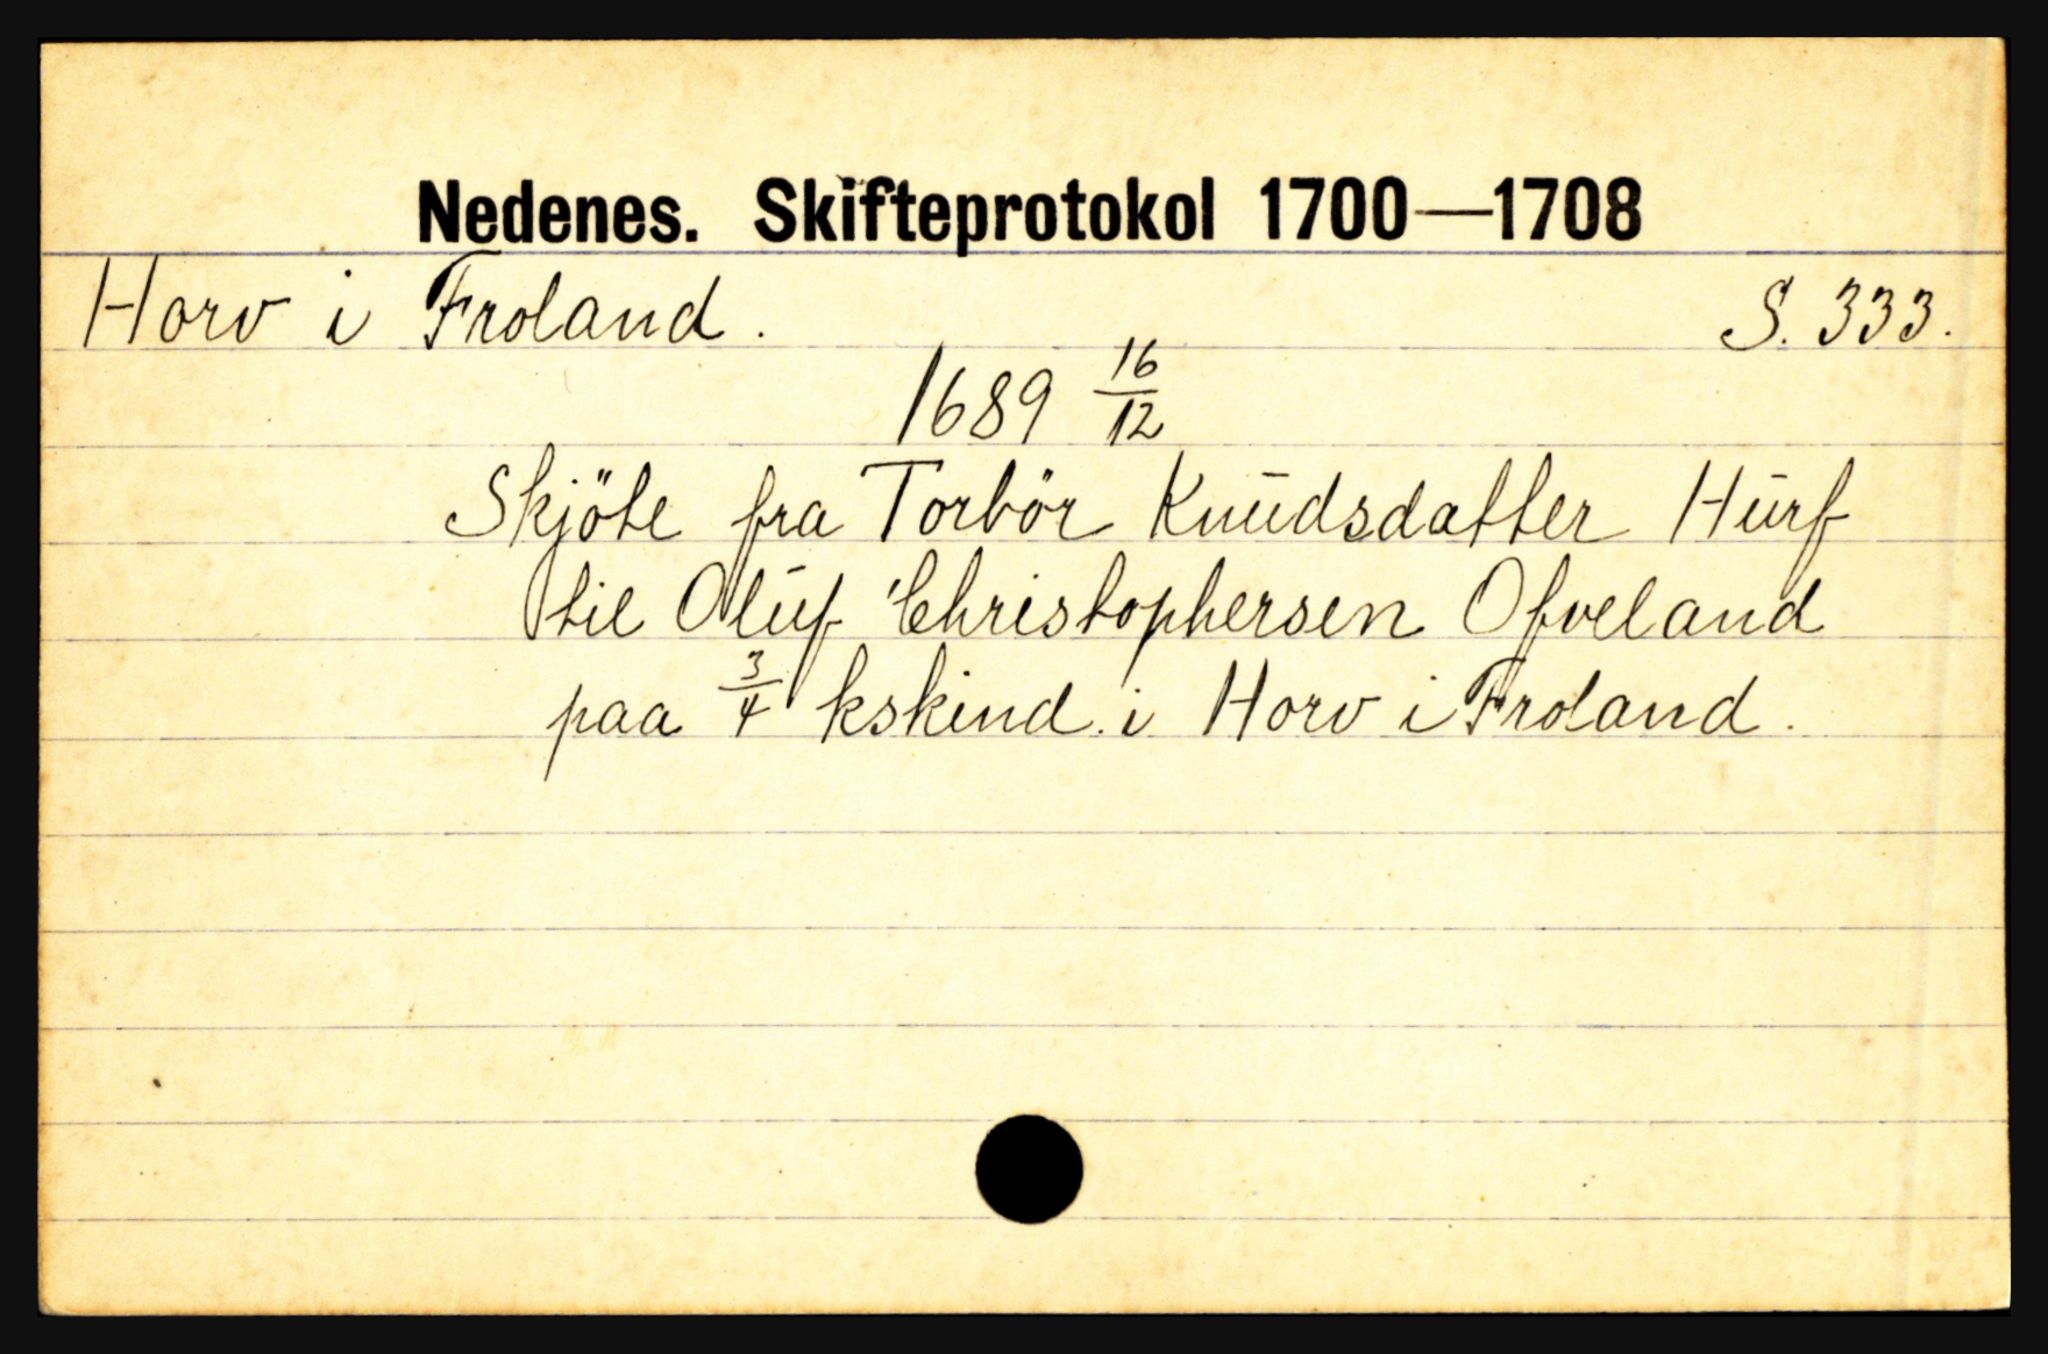 Nedenes. Skifteprotokol 1700—1708
Horv i Froland. S. 333.
1689 16/12
Skjöte fra Torbör Knudsdatter Hurf
til Oluf Christophersen Ofveland
paa 3/4 kskind i Horv i Froland.